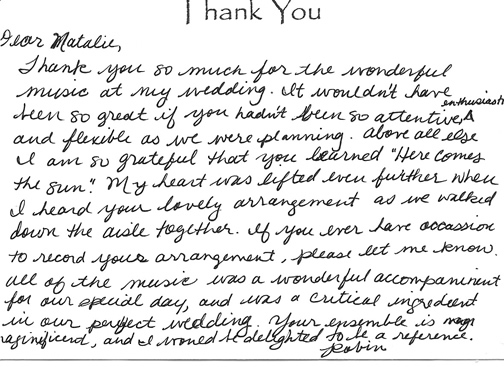 Thank You
Dear Natalie,
Thank you so much for the wonderful
music at my wedding. It wouldn't have
been so great if you hadn't been so attentive, enthusiastic
and flexible as we were planning. Above all else
I am so grateful that you learned "Here comes
the sun." My heart was lifted even further when
I heard your lovely arrangement as we walked
down the aisle together. If you ever have occassion
to record your arrangement, please let me know.
All of the music was a wonderful accompaniment
for our special day, and was a critical ingredient
in our perfect wedding. Your ensemble is
magnificent, and I would be delighted to be a reference.
Robin